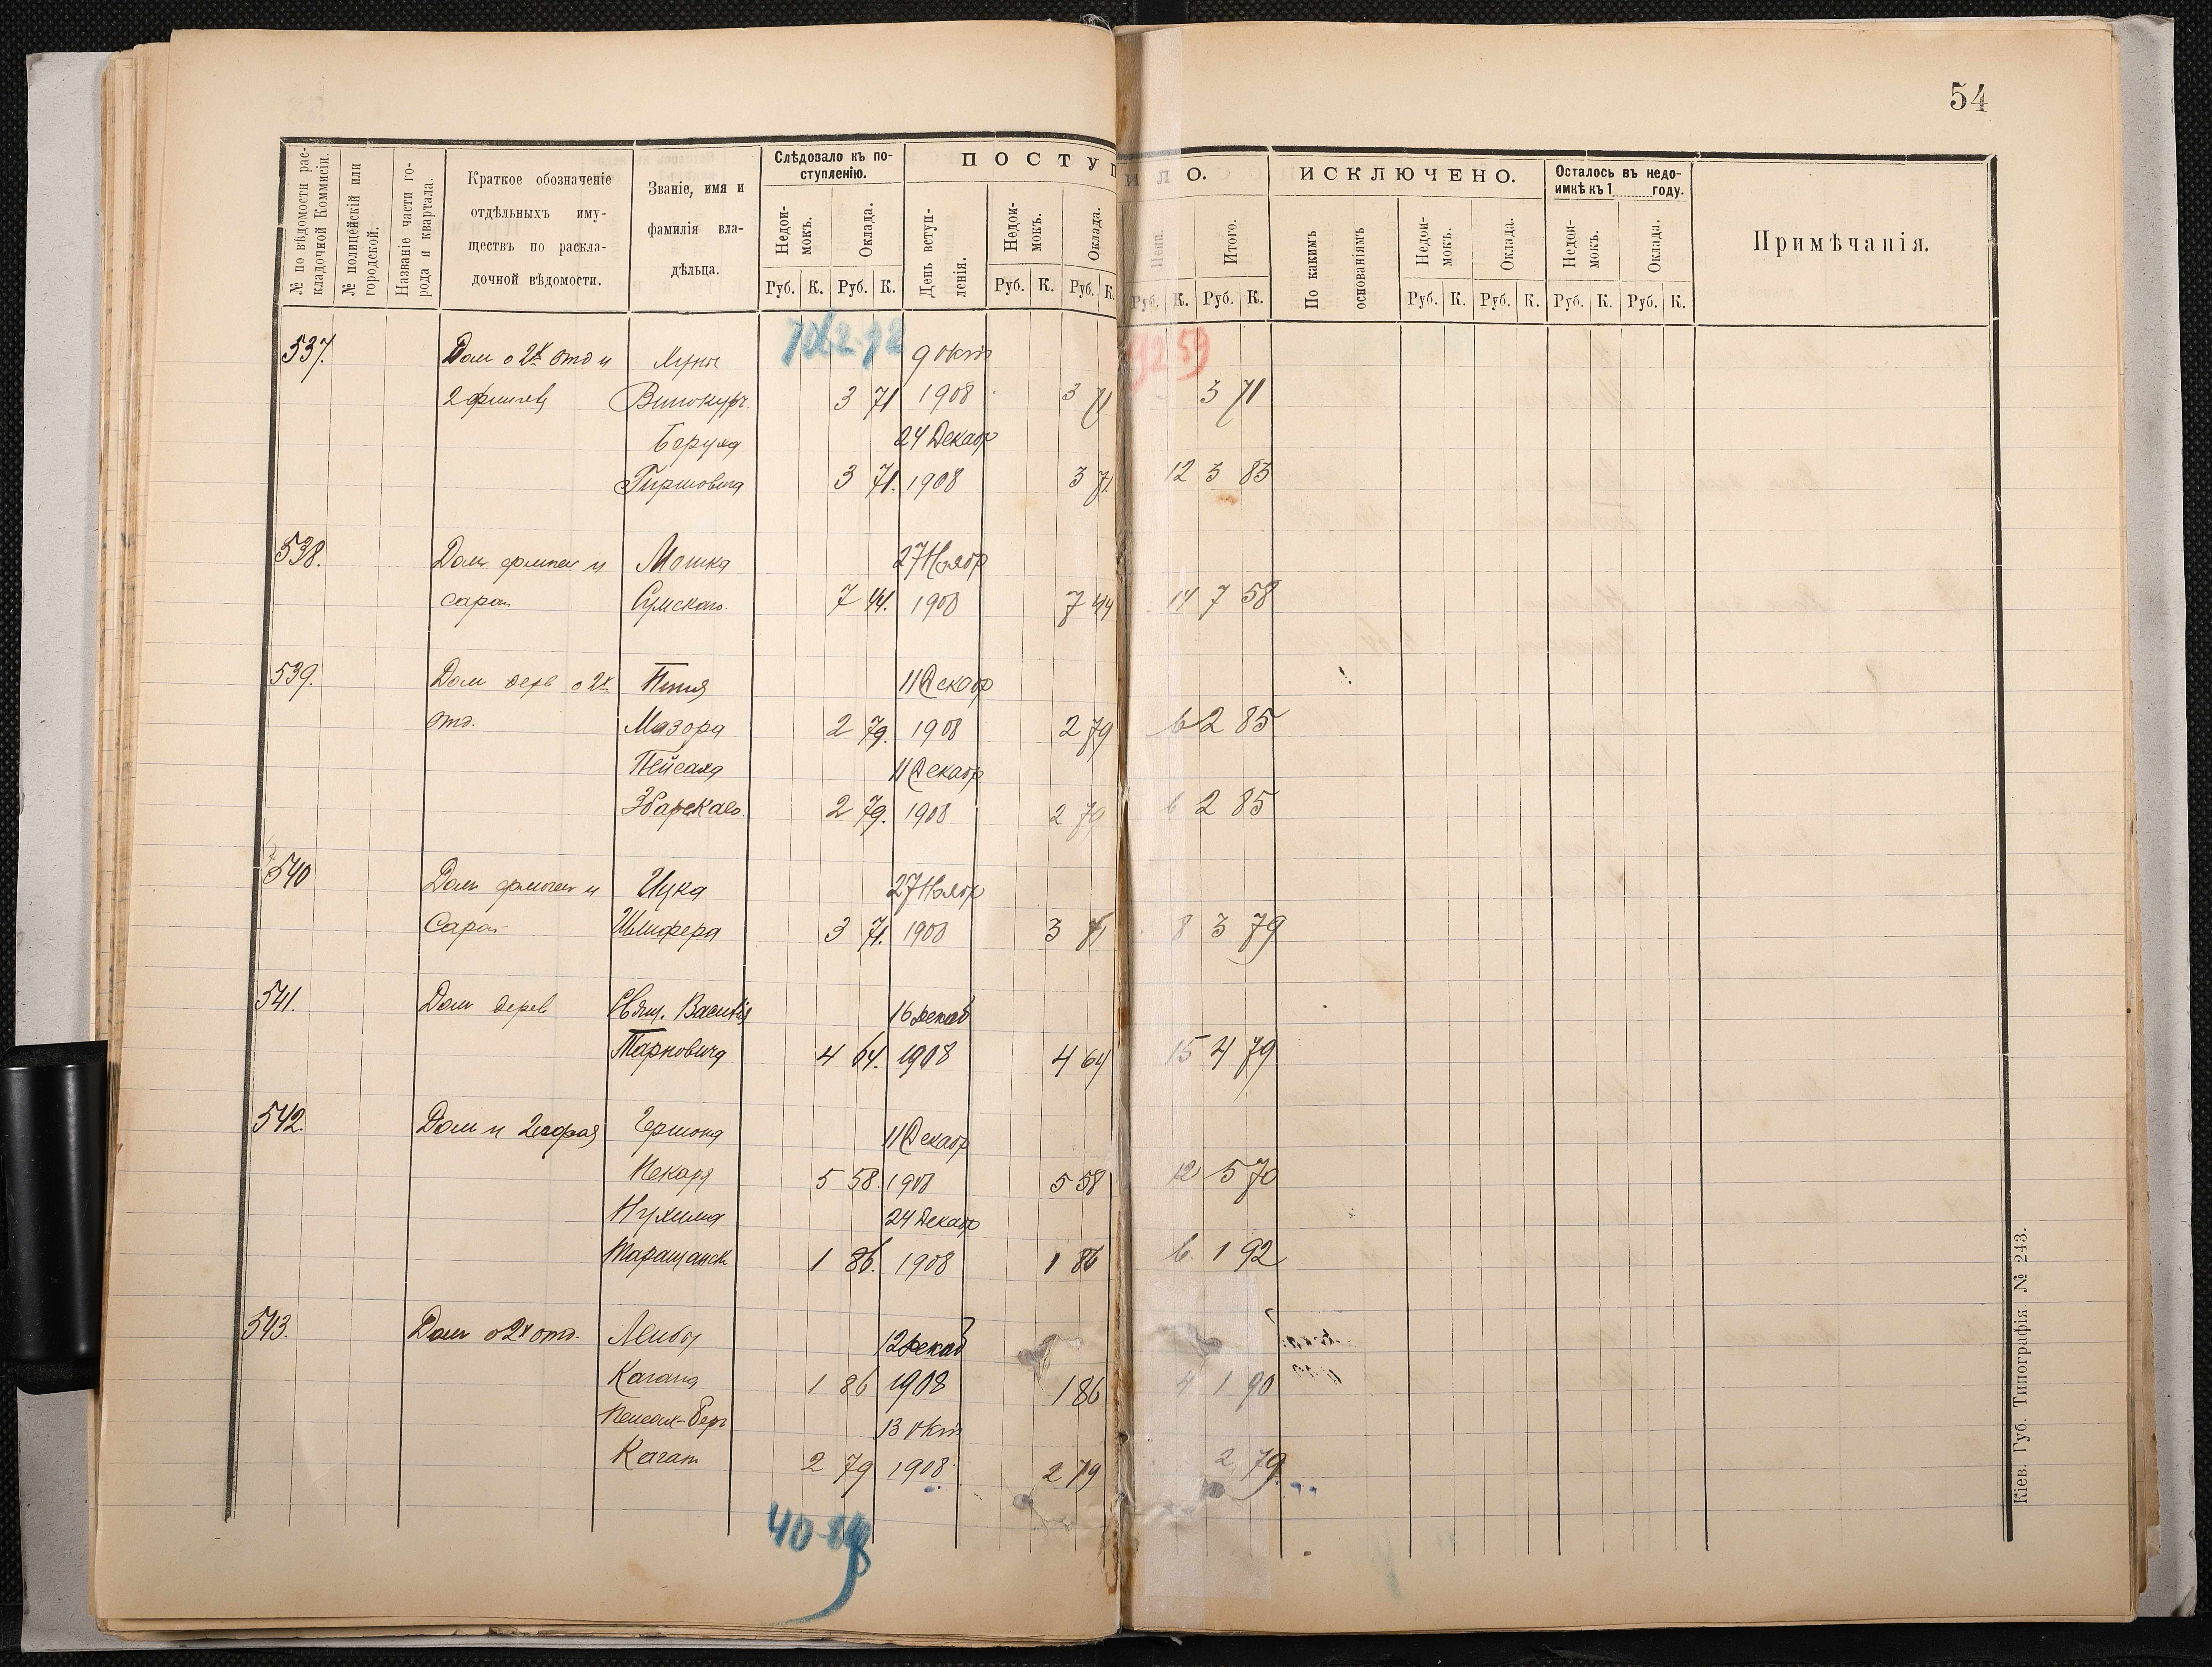 54
№ по вѣдомости рас-
кладочной Коммисіи.
№ полицейскій или
городской.
Названіе части го-
рода и квартала.
Краткое обозначеніе
отдѣльныхъ иму-
ществъ по раскла-
дочной вѣдомости.
Званіе, имя и
фамилія вла-
дѣльца.
Слѣдовало къ по-
ступленію.
Недои-
мокъ.
Оклада.
Руб. К. Руб. К.
ПОСТУП
ИЛО.
День вступ-
ленія.
Недои-
мокъ.
Оклада.
Руб. К. Руб. К.
Пени.
Итого.
Руб. К. Руб. К.
ИСКЛЮЧЕНО.
По какимъ
основаніямъ
Недои-
мокъ.
Оклада.
Руб. К. Руб. К.
Осталось въ недо-
имкѣ къ 1 году.
Недои-
мокъ.
Оклада.
Руб. К. Руб. К.
Примѣчанія.
537. Дом о 2х отд и 9 окт
2 Винокур. 3 71 1908 3 71 3 71
Боруха 24 Декабр
Гиршовича 3 71. 1908 3 71 12 3 83
538. Дом и Мошка 27 Ноябр
сарай Сумскаго. 7 44. 1908 7 44 14 7 58
539. Дом дерв о 2х 11 Декабр
отд. Мазора 2 79. 1908 2 79 6 2 85
Пейсаха 11 Декабр
Збарскаго. 2 79. 1908 2 79 6 2 85
540 Дом и Ицка 27 Ноябр
сарай Шлифера 3 71. 1908 3 71 8 3 79
541. Дом дерев Свящ. Василія 16 декаб
Тарновича 4 64. 1908 4 64 15 4 79
542. Дом и 2 сарая Гершона 11 Декабр
Пекаря 5 58. 1908 5 58 12 5 70
Нухима 24 Декабр
Таращанск 1 86. 1908 1 86 6 1 92
543. Дом о 2х отд. Лейбы 12 декаб
Кагана 1 86 1908 1 86 4 1 90
13 окт
Каган 2 79 1908 2 79 2 79
Кіев. Губ. Типографія № 243.